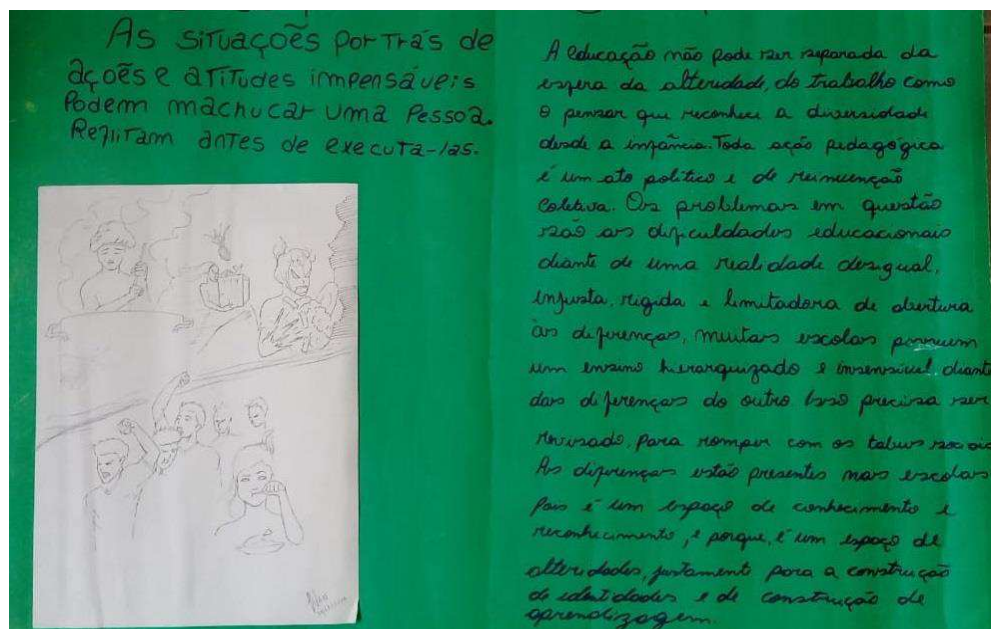 As situações por trás de
ações e atitudes impensáveis
Podem machucar uma Pessoa.
Reflitam antes de executa-las.
A educação não pode ser separada da
esfera da alteridade, do trabalho como
o pensar que reconhece a diversidade
desde a infância. Toda ação pedagógica
é um ato político e de reinvenção
coletiva. Os problemas em questão
são as dificuldades educacionais
diante de uma realidade desigual,
injusta, rígida e limitadora de abertura
às diferenças, muitas escolas possuem
um ensino hierarquizado e insensível, diant
das diferenças do outro. Isso precisa ser
revisado, para romper com os tabus
As diferenças estão presentes nas escolas
Pois é um espaço de conhecimento e
reconhecimento, e porque, é um espaço de
alteridades, justamente para a construção
de identidades e de construção de
aprendizagem.